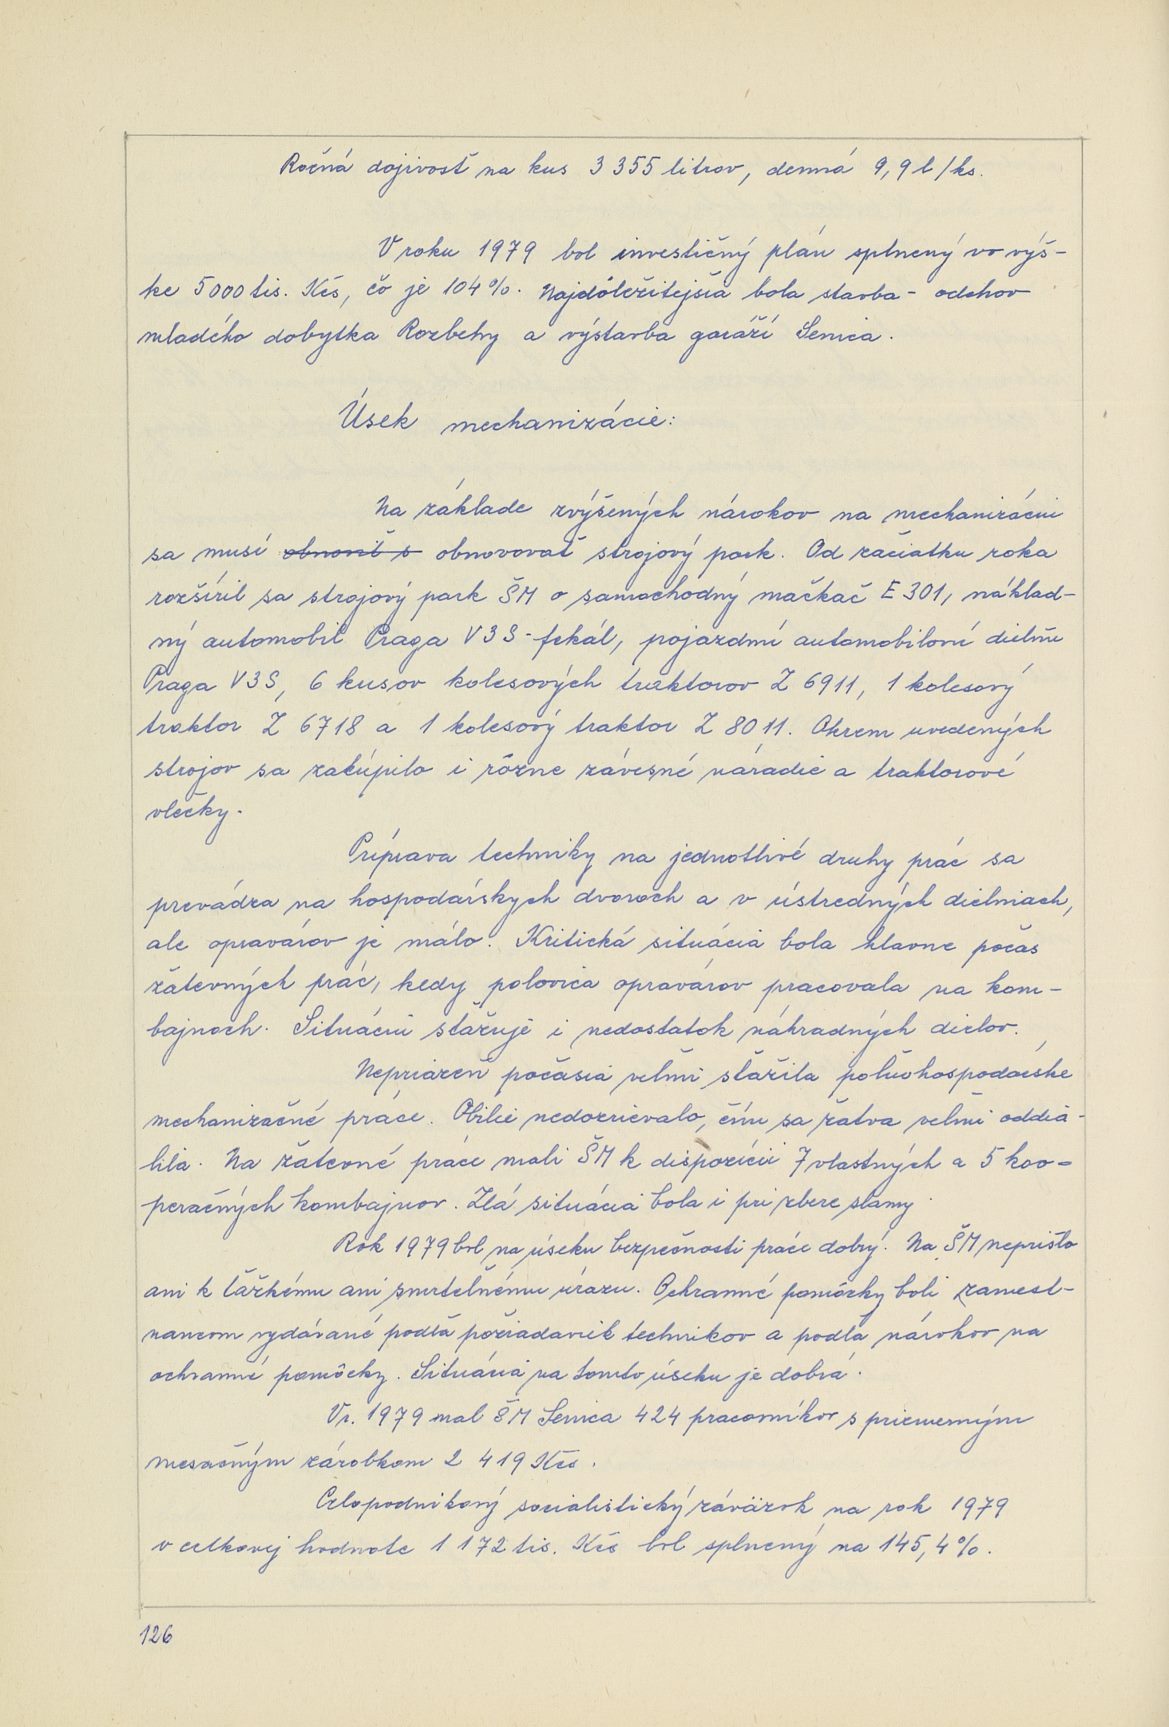 Ročná dojivosť na kus 3 355 litrov, denná 9,9 l/ks.
V roku 1979 bol investičný plán splnený vo výš-
ke 5 000 tis. Kčs, čo je 104 %. Najdôležitejšia bola stavba - odchov
mladého dobytka Rozbehy a výstavba garáží Senica.
Úsek mechanizácie:
Na základe zvýšených nárokov na mechanizáciu
sa musí obnoviť s obnovovať strojový park. Od začiatku roka
rozšíril sa strojový park ŠM o samochodný mačkač E 301, náklad-
ný automobil Praga V3S - fekál, pojazdnú automobilovú dielňu
Praga V3S, 6 kusov kolesových traktorov Z 6911, 1 kolesový
traktor Z 6718 a 1 kolesový traktor Z 8011. Okrem uvedených
strojov sa zakúpilo i rôzne závesné náradie a traktorové
vlečky.
Príprava techniky na jednotlivé druhy prác sa
prevádza na hospodárskych dvoroch a v ústredných dielniach,
ale opravárov je málo. Kritická situácia bola hlavne počas
žatevných prác, kedy polovica opravárov pracovala na kom-
bajnoch. Situáciu sťažuje i nedostatok náhradných dielov.
Nepriazeň počasia veľmi sťažila poľnohospodárske
mechanizačné práce. Obilie nedozrievalo, čím sa žatva veľmi oddia-
lila. Na žatevné práce mali ŠM k dispozícii 7 vlastných a 5 koo-
peračných kombajnov. Zlá situácia bola i pri zbere slamy.
Rok 1979 bol na úseku bezpečnosti práce dobrý. Na ŠM neprišlo
ani k ťažkému ani smrteľnému úrazu. Ochranné pomôcky boli zamest-
nancom vydávané podľa požiadaviek technikov a podľa nárokov na
ochranné pomôcky. Situácia na tomto úseku je dobrá.
V r. 1979 mal ŠM Senica 424 pracovníkov s priemerným
mesačným zárobkom 2 419 Kčs.
Celopodnikový socialistický záväzok na rok 1979
v celkovej hodnote 1 172 tis. Kčs bol splnený na 145,4 %.
126